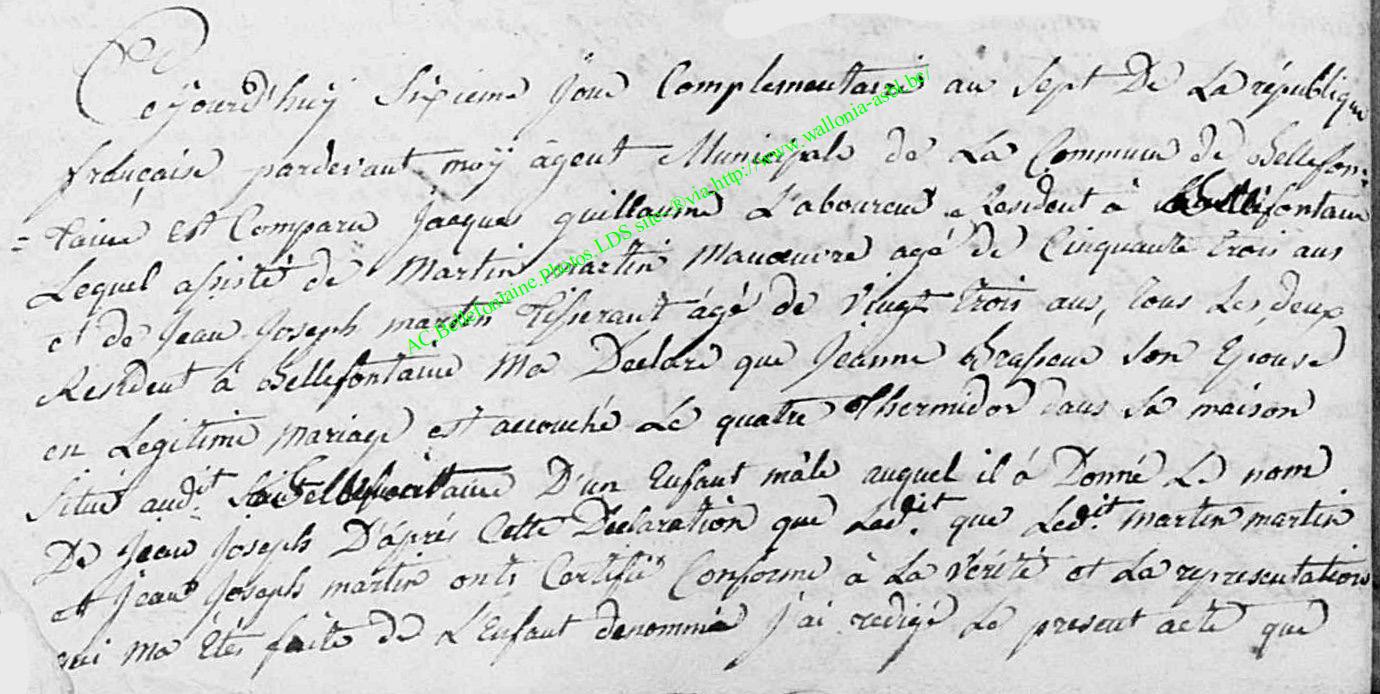 Cejourd'huy Sixieme Jour Complementaire an Sept De La république
française pardevant moÿ àgent Municipale de La Commune de Bellefon=
=taine est Comparu Jacques guillaume Laboureur Resident à Bellefontaine
Lequel assisté de Martin martin Manœuvre agé de Cinquante trois ans
et de Jean Joseph martin Tisserant âgé de Vingt trois ans, tous Les deux
Resident à Bellefontaine Ma Declaré que Jeanne Brasseur Son Epouse
en Legitime mariage est accouché Le quatre Thermidor dans Sa maison
Situé audit Bellefontaine D'un Enfant mâle auquel il à Donné Le nom
De Jean Joseph D'àprés Cette Declaration que Ledit que Ledit martin martin
et Jean Joseph martin onts Certifié Conforme à La Vérité et La representation
qui ma étés faite de L'Enfant denommé j'ai redigé Le present acte que
AC.Bellefontaine.Photos.LDS sites®via:http://www.wallonia-asbl.be/